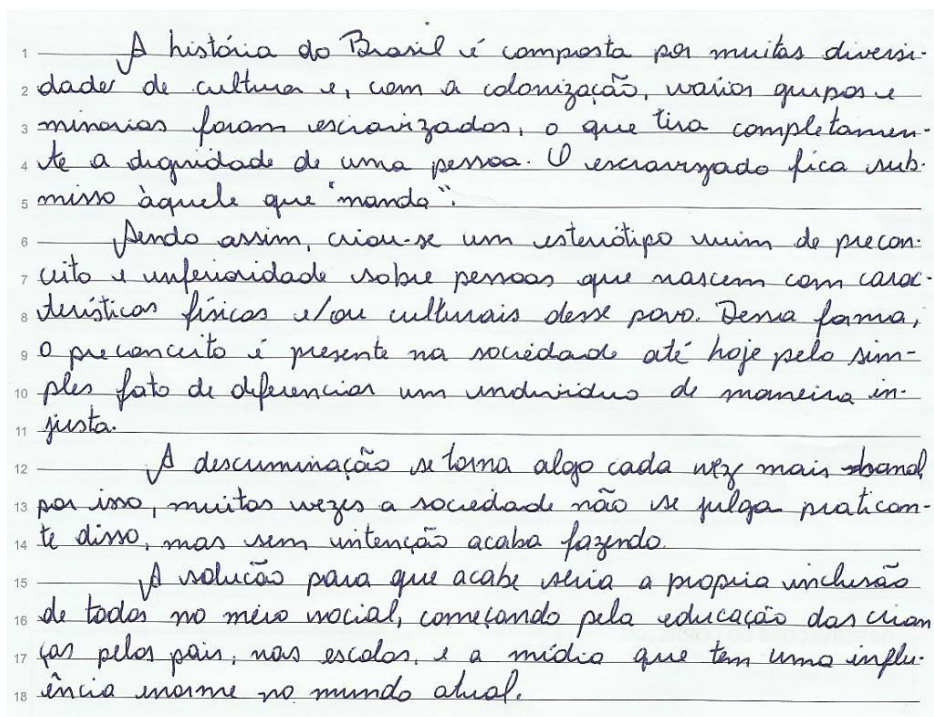 1 A história do Brasil é composta por muitas diversi-
2 dades de cultura e, com a colonização, vários grupos e
3 minorias foram escravizados, o que tira completamen-
4 te a dignidade de uma pessoa. O escravizado fica sub-
5 misso àquele que "manda".
6 Sendo assim, criou-se um esteriótipo ruim de precon-
7 ceito e inferioridade sobre pessoas que nascem com carac-
8 terísticas físicas e/ou culturais desse povo. Dessa forma,
9 o preconceito é presente na sociedade até hoje pelo sim-
10 ples fato de diferenciar um individuo de maneira in-
11 justa.
12 A descriminação se torna algo cada vez mais banal,
13 por isso, muitas vezes a sociedade não se julga pratican-
14 te disso, mas sem intenção acaba fazendo.
15 A solução para que acabe seria a propria inclusão
16 de todos no meio social, começando pela educação das crian
17 ças pelos pais, nas escolas, e a mídia que tem uma influ-
18 ência enorme no mundo atual.